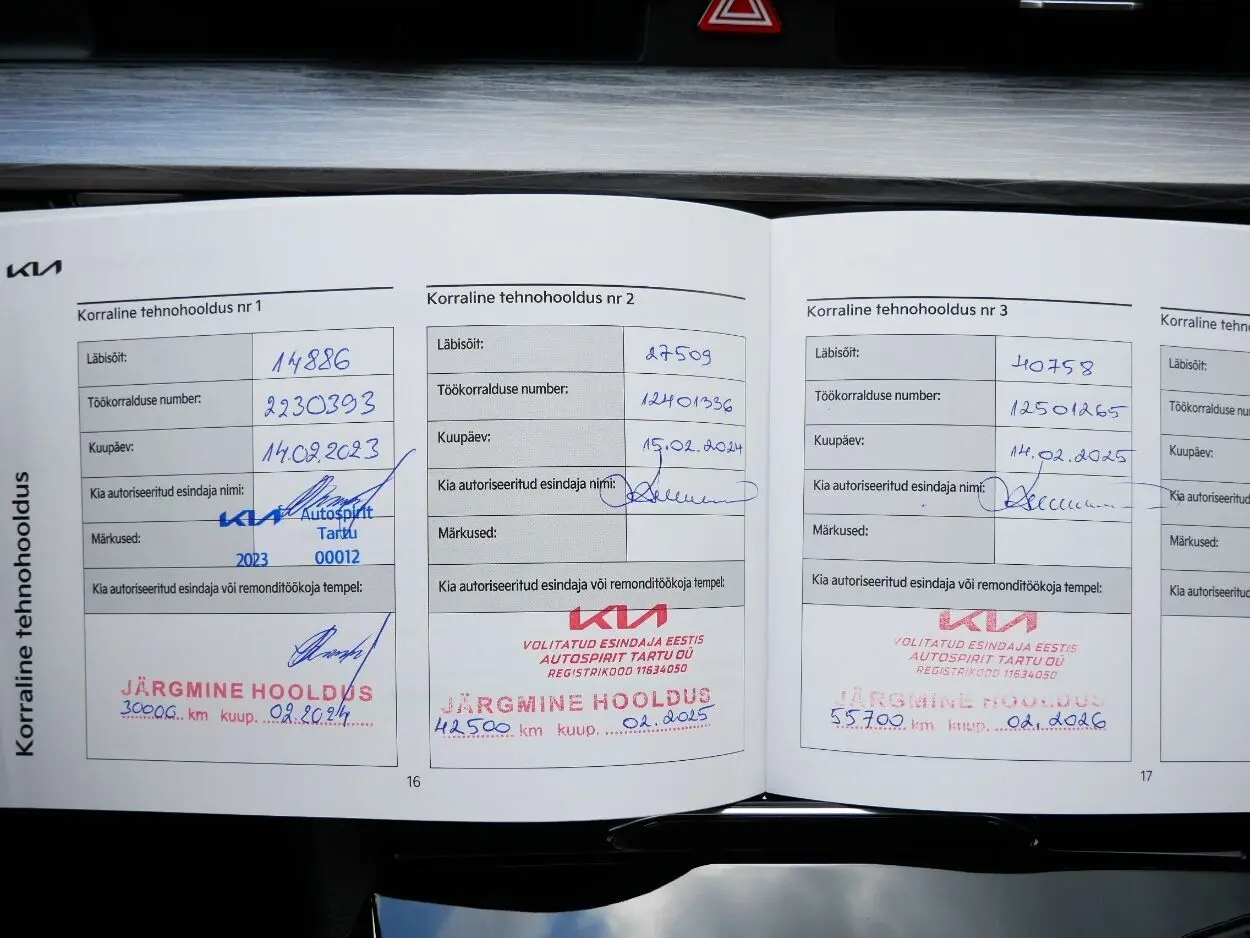 KIA
Korraline tehnohooldus
Korraline tehnohooldus nr 1
Läbisõit: 14886
Töökorralduse number: 2230393
Kuupäev: 14.02.2023
Kia autoriseeritud esindaja nimi:
KIA Autospirit
Tartu
Märkused:
2023 00012
Kia autoriseeritud esindaja või remonditöökoja tempel:
JÄRGMINE HOOLDUS
30000 km kuup. 02.2024
16
Korraline tehnohooldus nr 2
Läbisõit: 27509
Töökorralduse number: 12401336
Kuupäev: 15.02.2024
Kia autoriseeritud esindaja nimi:
Märkused:
Kia autoriseeritud esindaja või remonditöökoja tempel:
KIA
VOLITATUD ESINDAJA EESTIS
AUTOSPIRIT TARTU OÜ
REGISTRIKOOD 11634050
JÄRGMINE HOOLDUS
42500 km kuup. 02.2025
Korraline tehnohooldus nr 3
Läbisõit: 40758
Töökorralduse number: 12501265
Kuupäev: 14.02.2025
Kia autoriseeritud esindaja nimi:
Märkused:
Kia autoriseeritud esindaja või remonditöökoja tempel:
KIA
VOLITATUD ESINDAJA EESTIS
AUTOSPIRIT TARTU OÜ
REGISTRIKOOD 11634050
JÄRGMINE HOOLDUS
55700 km kuup. 02.2026
17
Korraline tehno
Läbisõit:
Töökorralduse nu
Kuupäev:
Kia autoriseeritud
Märkused:
Kia autoriseeritud